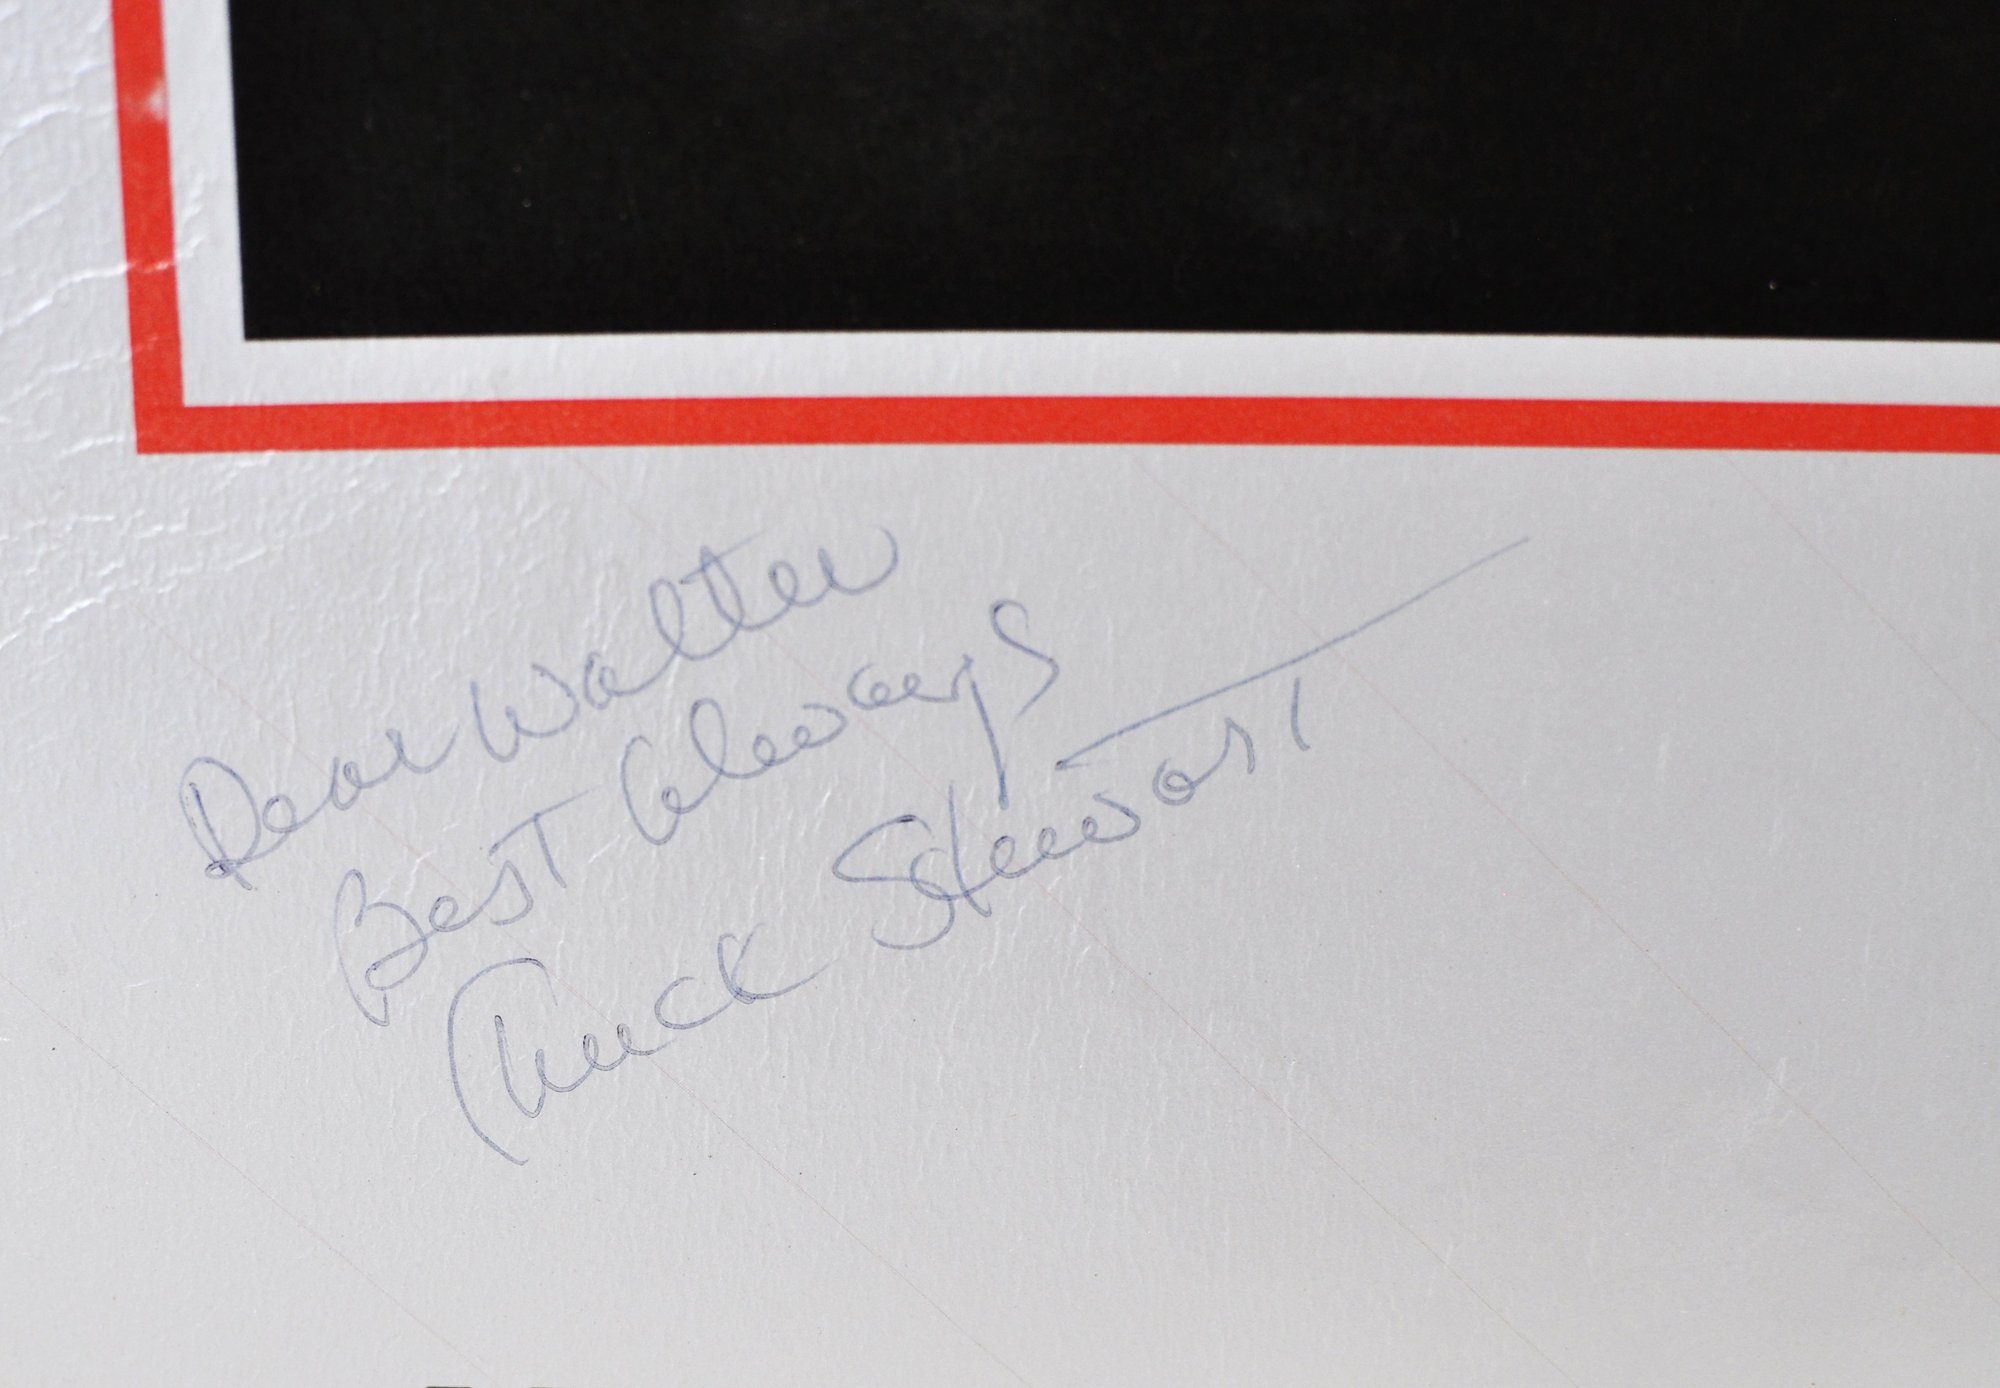 Dear Walter
Best Always
Chuck Stewart